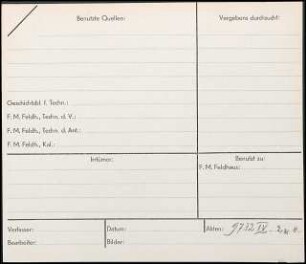 Benutzte Quellen:
Vergebens durchsucht:
Geschichtsbl. f. Techn.:
F. M. Feldh., Techn. d. V.:
F. M. Feldh., Techn. d. Ant.:
F. M. Feldh., Kal.:
Irrtümer:
Benutzt zu:
F. M. Feldhaus:
Verfasser:
Datum:
Akten: 9732 IV.
Bearbeiter:
Bilder: